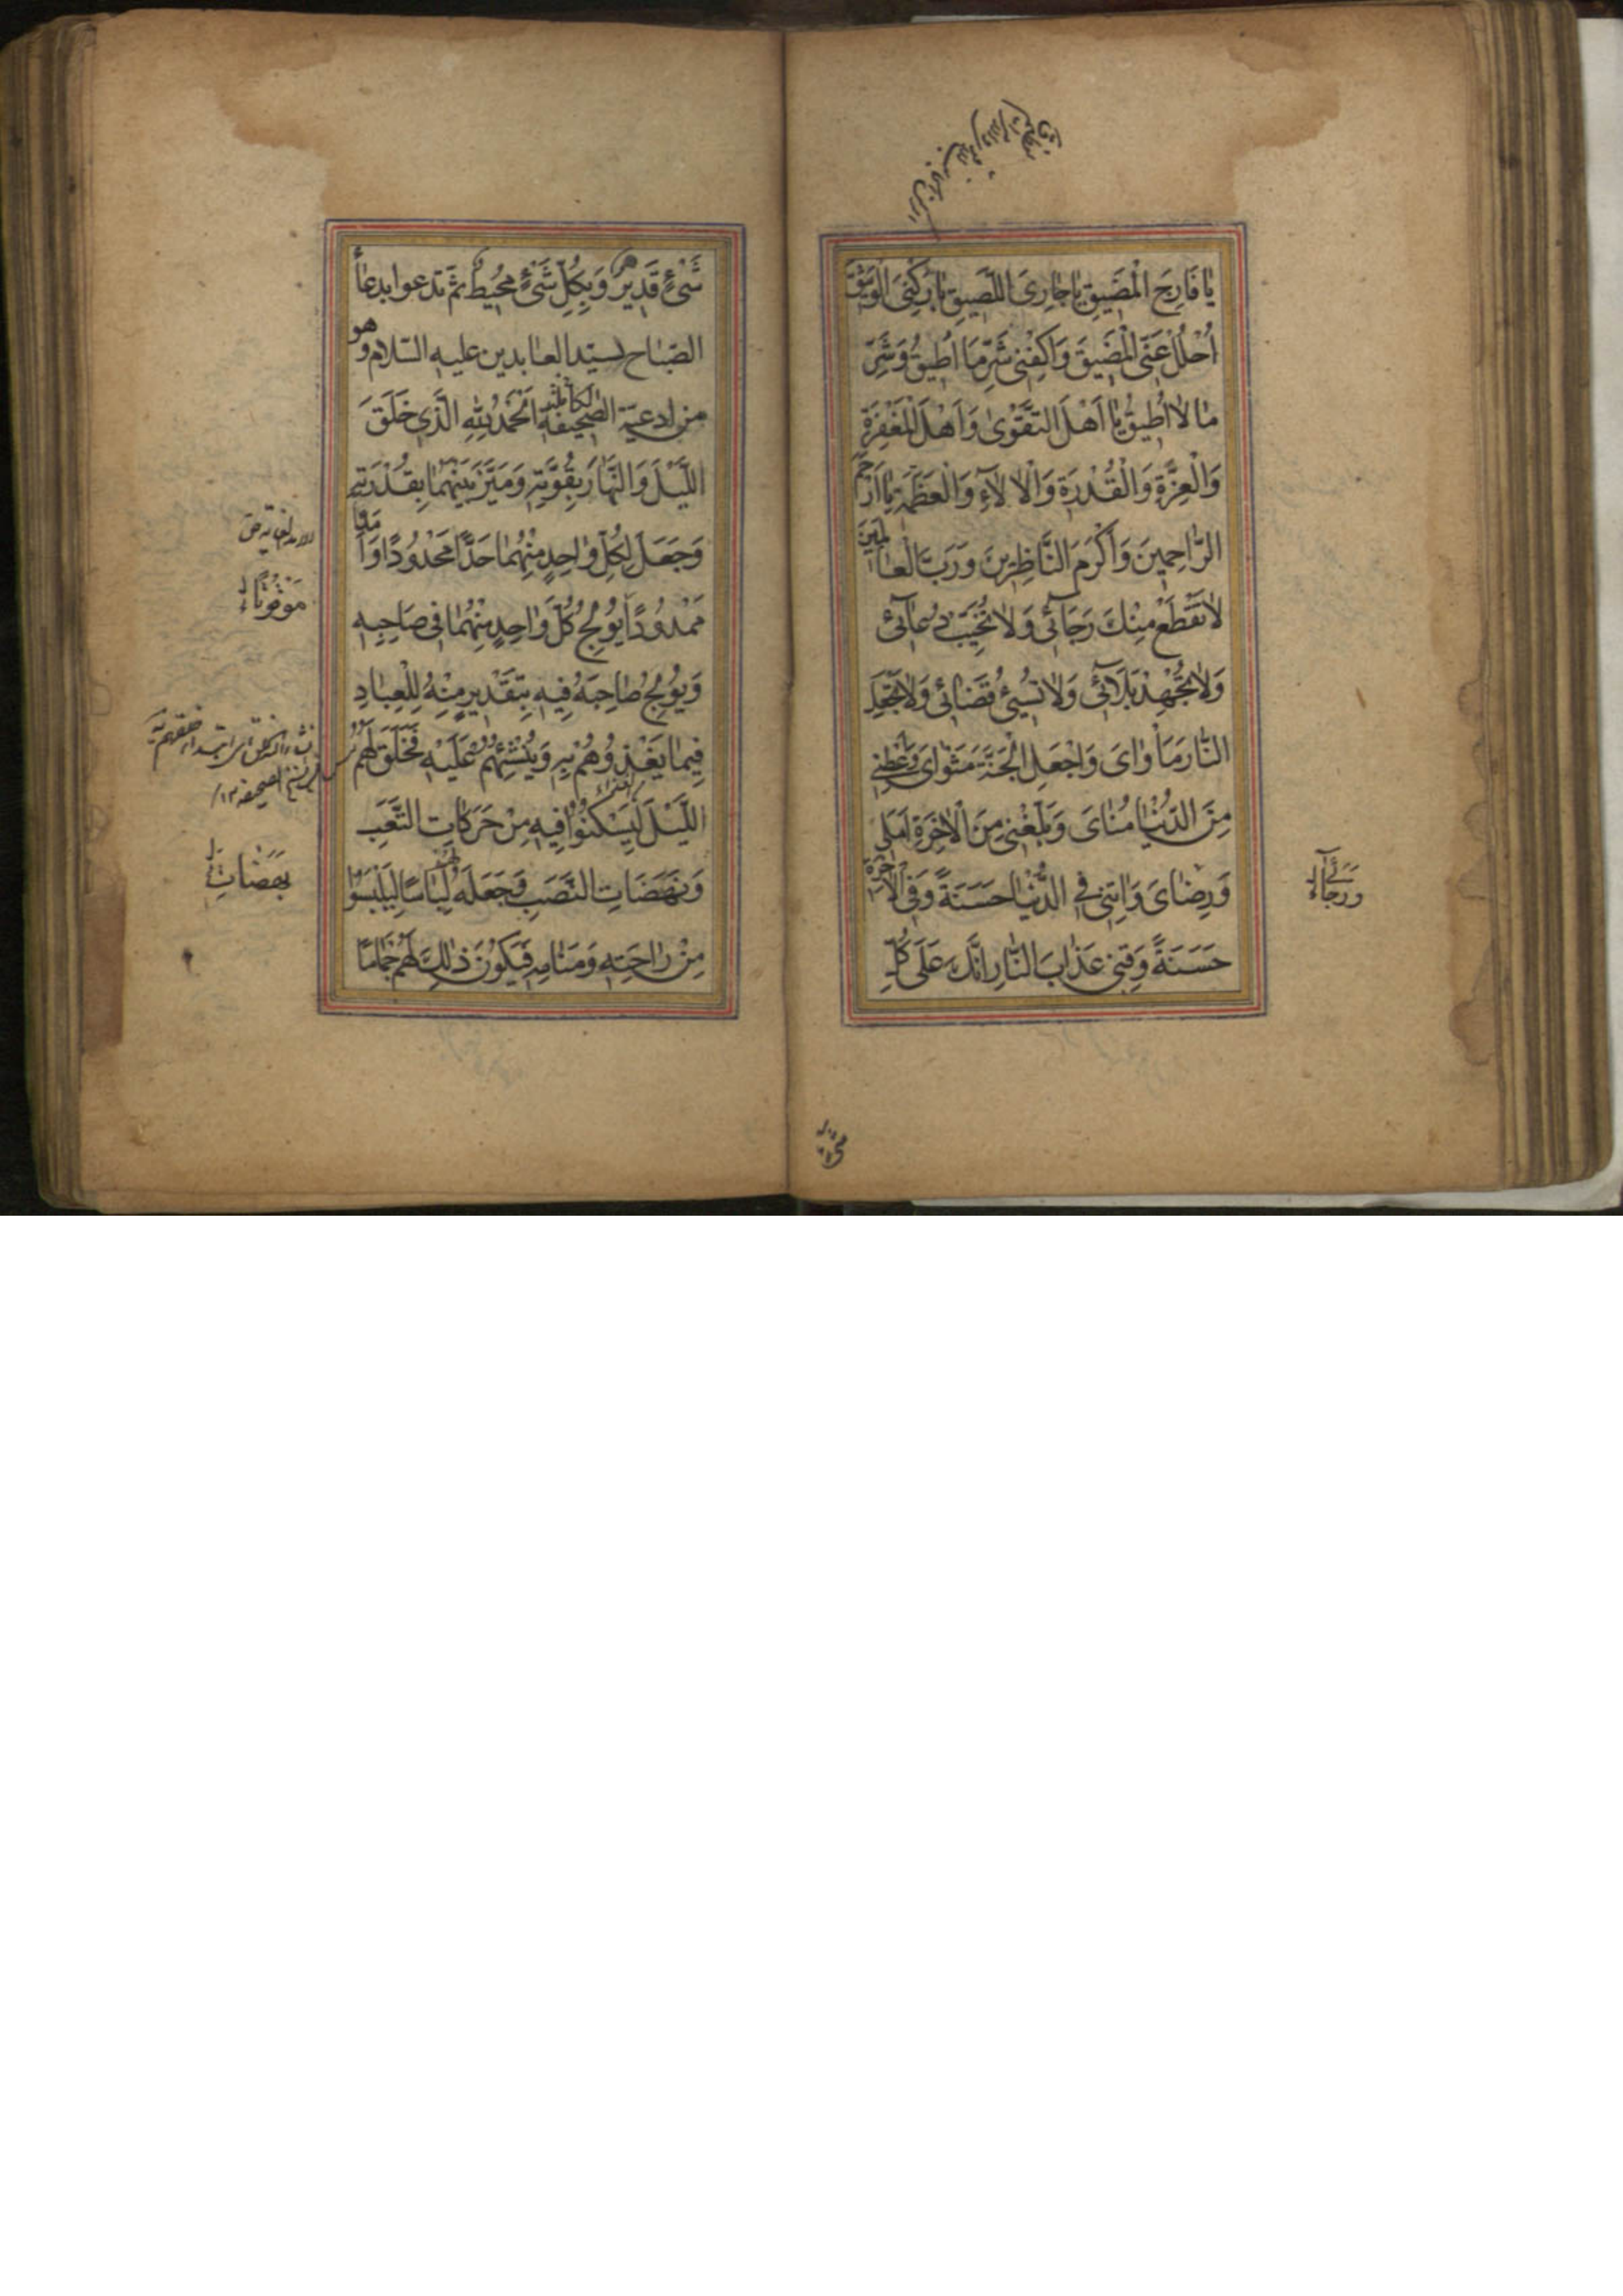 يٰا فَارِجَ الْمَضيقِ يٰا جٰارِىَ اللَّصيقِ يٰا رُكْنِىَ الْوَثيقَ
اُحْلُلْ عَنِّى الْمَضيقَ وَاكْفِنى شَرَّ مٰا اُطيقُ وَشَرَّ
مٰا لاٰ اُطيقُ يٰا اَهْلَ التَّقْوٰى وَاَهْلَ الْمَغْفِرَةِ
وَالْعِزَّةِ وَالْقُدْرَةِ وَالْاٰلاٰءِ وَالْعَظَمَةِ يٰا اَرْحَمَ
الرّٰاحِمينَ وَاَكْرَمَ النَّاظِرينَ وَرَبَّ الْعٰالَمينَ
لاٰ تَقْطَعْ مِنْكَ رَجَآئى وَلاٰ تُخَيِّبْ دُعٰآئى
وَلاٰ تُجْهِدْ بَلاٰئى وَلاٰ تُسِئْ قَضٰائى وَلاٰ تَجْعَلِ
النّٰارَ مَاْوٰاىَ وَاجْعَلِ الْجَنَّةَ مَثْوٰاىَ وَاَعْطِنى
مِنَ الدُّنْيٰا مُنٰاىَ وَبَلِّغْنى مِنَ الْاٰخِرَةِ اَمَلى
وَرِضٰاىَ وَاٰتِنى فِى الدُّنْيٰا حَسَنَةً وَفِى الْاٰخِرَةِ
حَسَنَةً وَقِنى عَذٰابَ النّٰارِ اِنَّكَ عَلٰى كُلِّ
شَىْءٍ قَديرٌ وَبِكُلِّ شَىْءٍ مُحيطٌ ثم تدعوا بدعاء
الصّباح لسيّد العابدين عليه السّلام وهو
من ادعية الصّحيفة الكاملة اَلْحَمْدُ لِلّٰهِ الَّذى خَلَقَ
اللَّيْلَ وَالنَّهٰارَ بِقُوَّتِهِ وَمَيَّزَ بَيْنَهُمٰا بِقُدْرَتِهِ
وَجَعَلَ لِكُلِّ وٰاحِدٍ مِنْهُمٰا حَدّاً مَحْدُودًا وَاَمَدًا
مَمْدُودًا يُولِجُ كُلَّ وٰاحِدٍ مِنْهُمٰا فى صَاحِبِهِ
وَيُولِجُ صٰاحِبَهُ فيهِ بِتَقْديرٍ مِنْهُ لِلْعِبٰادِ
فيمٰا يَغْذُوهُمْ بِهِ وَيُنْشِئُهُمْ عَلَيْهِ فَخَلَقَ لَهُمُ
اللَّيْلَ لِيَسْكُنُوا فيهِ مِنْ حَرَكٰاتِ التَّعَبِ
وَنَهَضَاتِ النَّصَبِ وَجَعَلَهُ لِبٰاسًا لِيَلْبَسُوا
مِنْ رٰاحَتِهِ وَمَنٰامِهِ فَيَكُونَ ذٰلِكَ لَهُمْ جَمٰامًا
مَوْقُوتًا